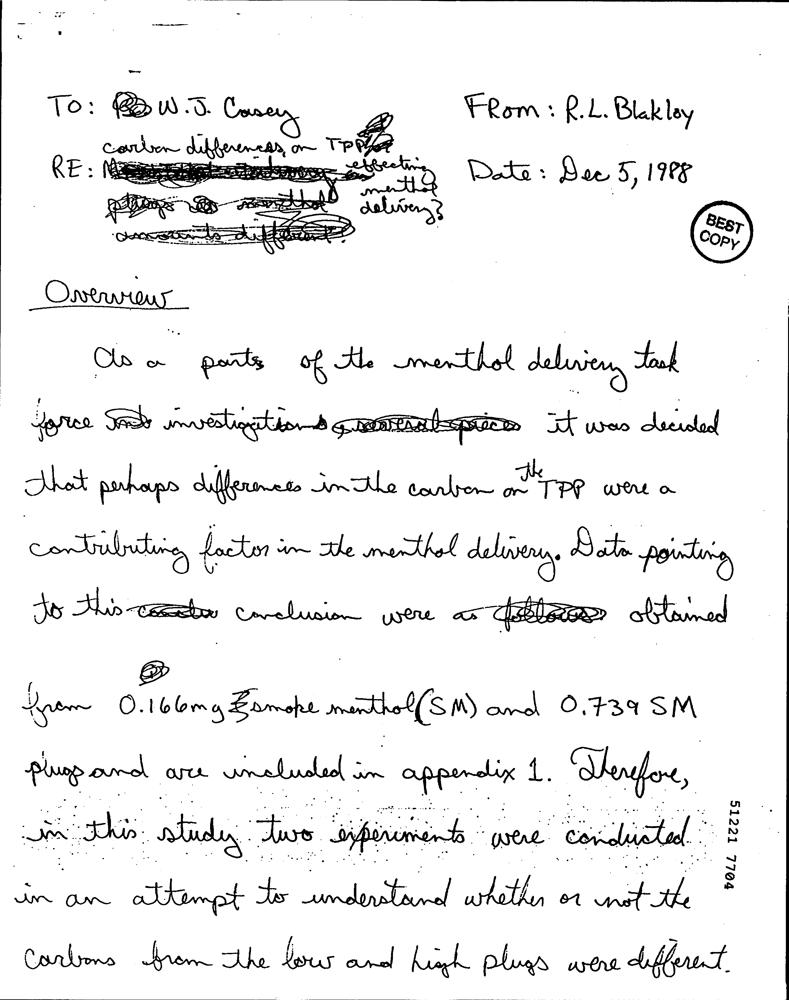 TO: W.J. Casey
FROM: R.L. Blakley
carbon differences on TPP
effecting
RE:
menthol
delivery?
Date: Dec 5, 1988
BEST
COPY
Overview
As a parts of the menthol delivery task
force investigation it was decided
the
that perhaps differences in the carbon on TPP were a
contributing factor in the menthol delivery. Data pointing
to this conclusion were obtained
from 0.166mg smoke menthol (SM) and 0.739 SM
plugs and are included in appendix 1. Therefore,
in this study two experiments were conducted
in an attempt to understand whether or not the
carbons from the low and high plugs were different.
51221 7704